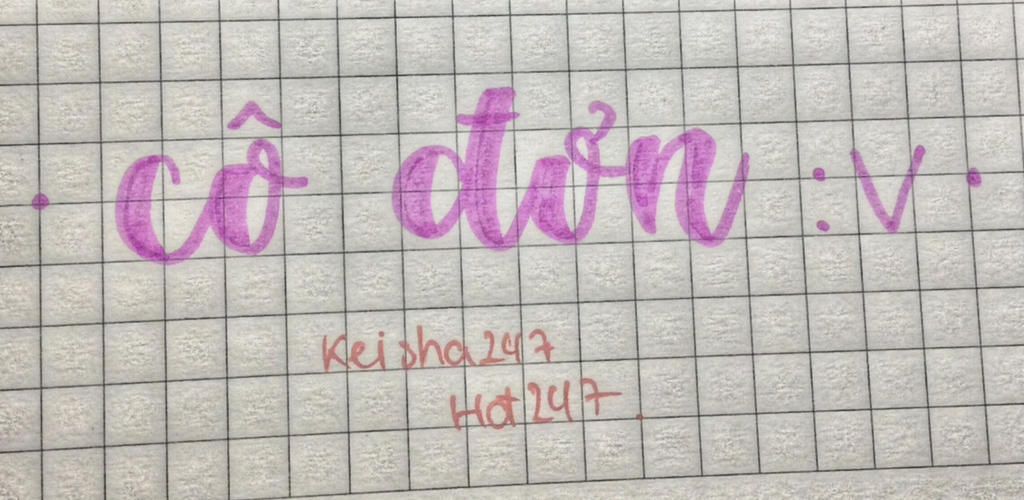 . cô đơn :v .
Keisha247
Hot247.